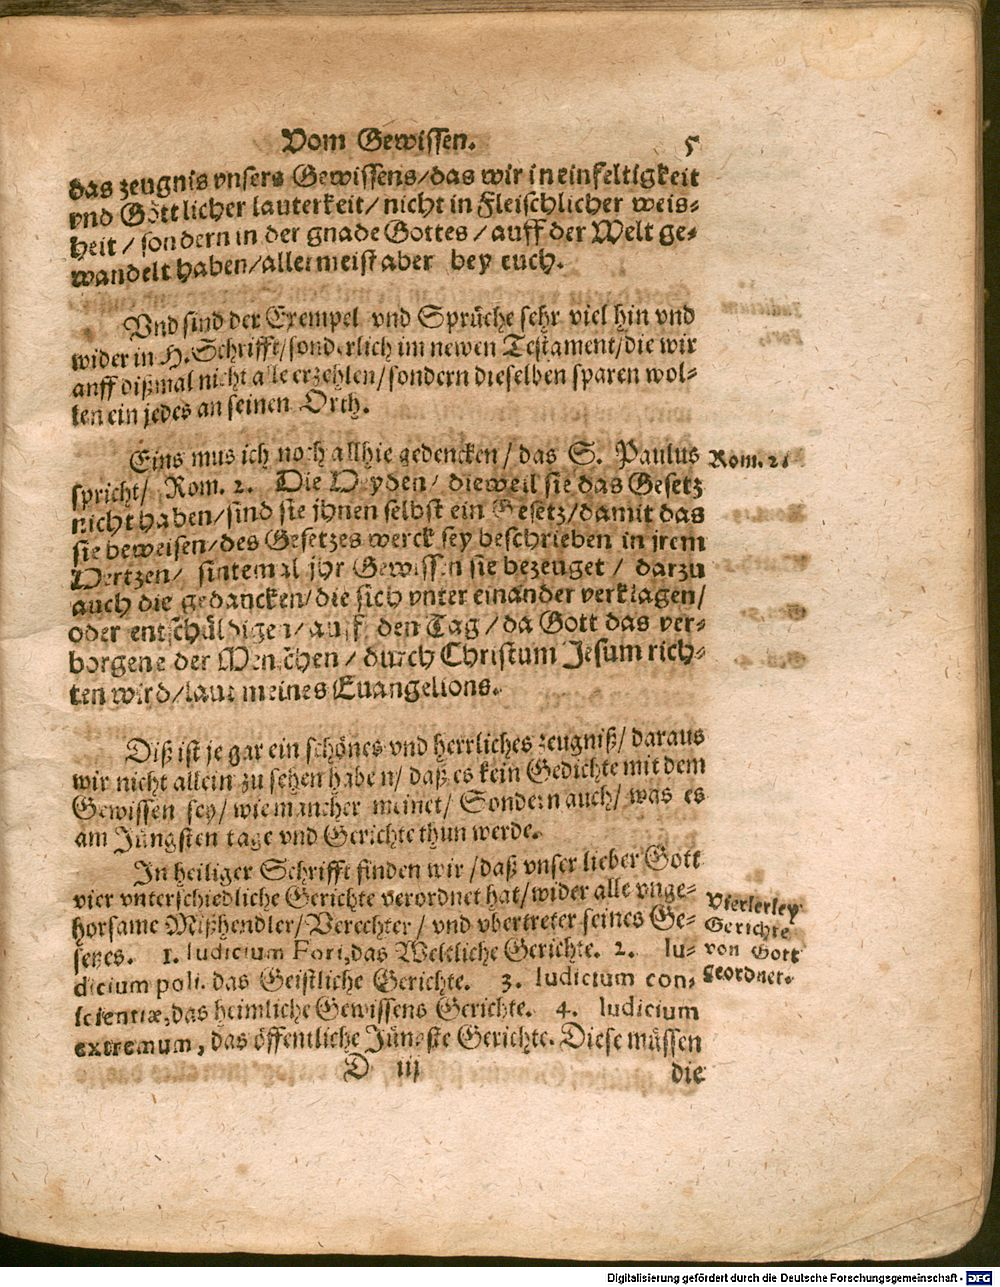 Vom Gewissen. 5
das zeugnis vnsers Gewissens/das wir in einfeltigkeit
vnd Göttlicher lauterkeit/ nicht in Fleischlicher weis-
heit / sondern in der gnade Gottes / auff der Welt ge-
wandelt haben/allermeist aber bey euch.
Vnd sind der Exempel vnd Sprüche sehr viel hin vnd
wider in H. Schrifft/sonderlich im newen Testament/die wir
auff dißmal nicht alle erzehlen/sondern dieselben sparen wol-
len ein jedes an seinen Orth.
Eins mus ich noch allhie gedencken / das S. Paulus
Rom. 2.
spricht/ Rom. 2. Die Heyden/ dieweil sie das Gesetz
nicht haben/sind sie jhnen selbst ein Gesetz/damit das
sie beweisen/des Gesetzes werck sey beschrieben in jrem
Hertzen/ sintemal jhr Gewissen sie bezeuget / darzu
auch die gedancken/die sich vnter einander verklagen/
oder entschüldigen/auff den Tag / da Gott das ver-
borgene der Menschen / durch Christum Jesum rich-
ten wird/laut meines Euangelions.
Diß ist je gar ein schönes vnd herrliches zeugniß/ daraus
wir nicht allein zu sehen haben/ daß es kein Gedichte mit dem
Gewissen sey/ wie mancher meinet/ Sondern auch/ was es
am Jüngsten tage vnd Gerichte thun werde.
In heiliger Schrifft finden wir / daß vnser lieber Gott
vier vnterschiedliche Gerichte verordnet hat/wider alle vnge-
horsame Mißhendler/Verechter/ vnd vbertreter seines Ge-
setzes. 1. Iudicium Fori, das Weltliche Gerichte. 2. Iu-
dicium poli. das Geistliche Gerichte. 3. Iudicium con-
scientiæ, das heimliche Gewissens Gerichte. 4. Iudicium
extremum, das öffentliche Jüngste Gerichte. Diese müssen
Vierlerley
Gerichte
von Gott
geordnet.
D iij die
Digitalisierung gefördert durch die Deutsche Forschungsgemeinschaft - DFG